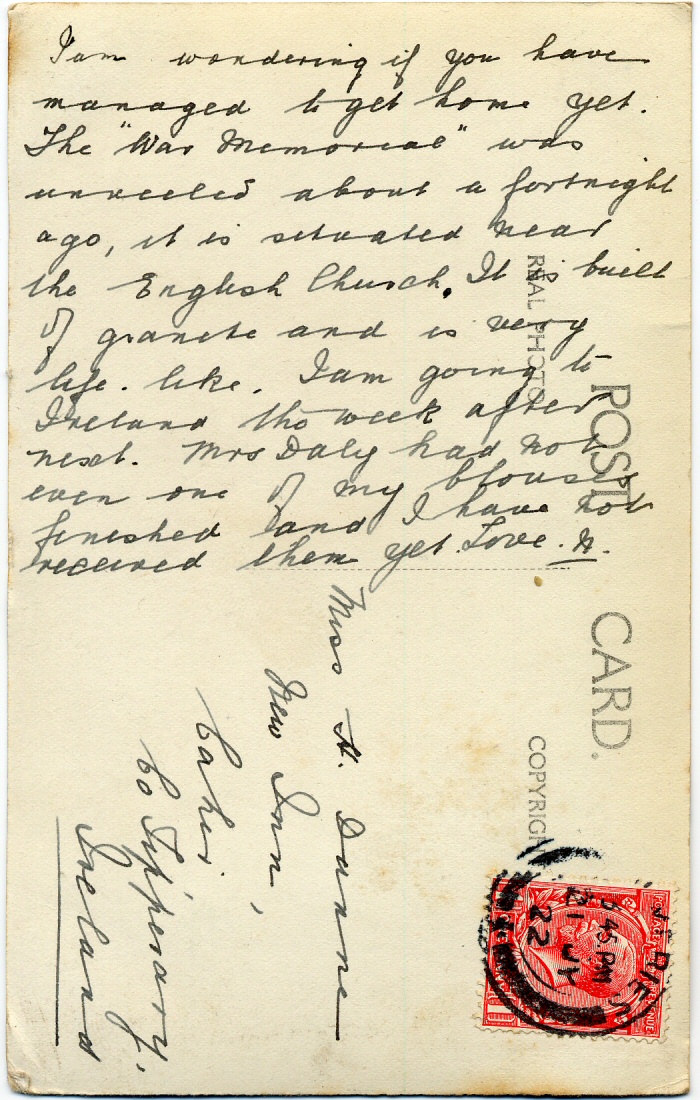 I am wondering if you have
managed to get home yet.
The "War Memorial" was
unveiled about a fortnight
ago, it is situated near
the English Church. It is built
of granite and is very
life-like. I am going to
Ireland the week after
next. Mrs Daly had not
even one of my blouses
finished and I have not
received them yet. Love. N.
Miss N. Dunne
New Inn,
Caher.
Co Tipperary,
Ireland
REAL PHOTO
POST CARD.
COPYRIGHT
45 PM
21 JY
22